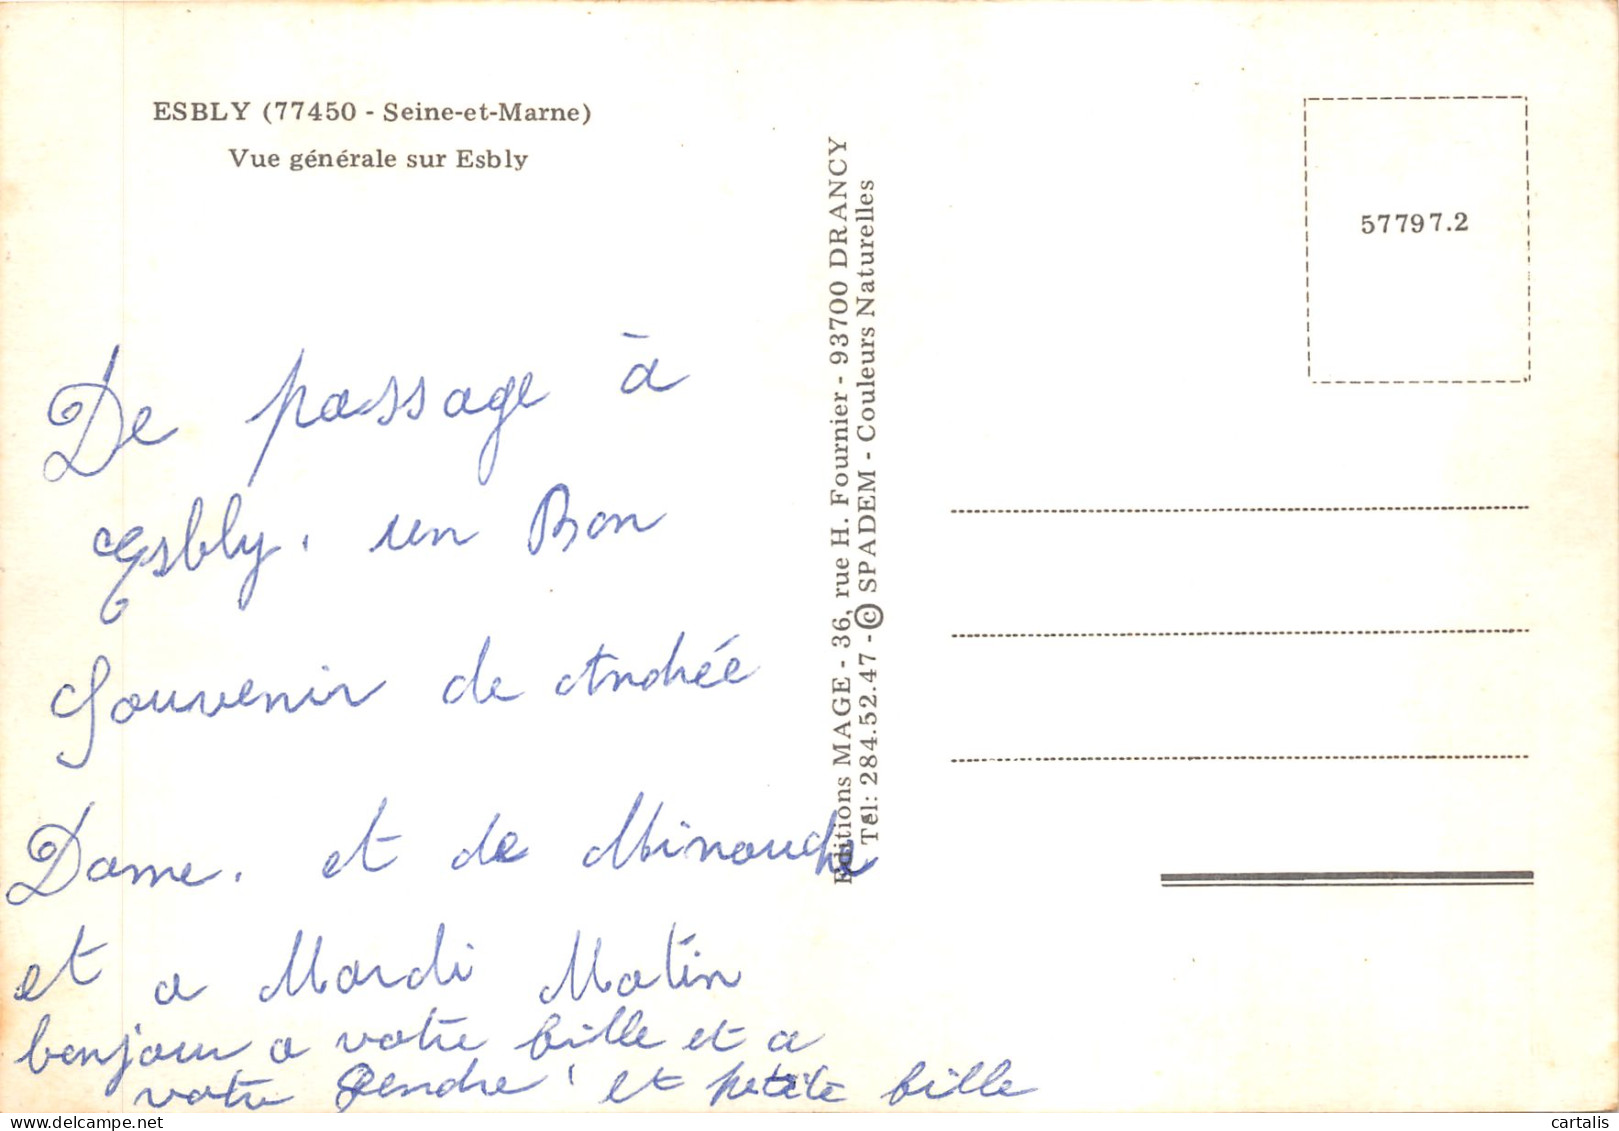 ESBLY (77450 - Seine-et-Marne)
Vue générale sur Esbly
De passage à
Esbly. un Bon
Souvenir de Andrée
Dame. et de Minouche
et a Mardi Matin
bonjour a votre fille et a
votre Gendre, et petite fille
Editions MAGE - 36, rue H. Fournier - 93700 DRANCY
Tél: 284.52.47 - © SPADEM - Couleurs Naturelles
57797.2
cartalis